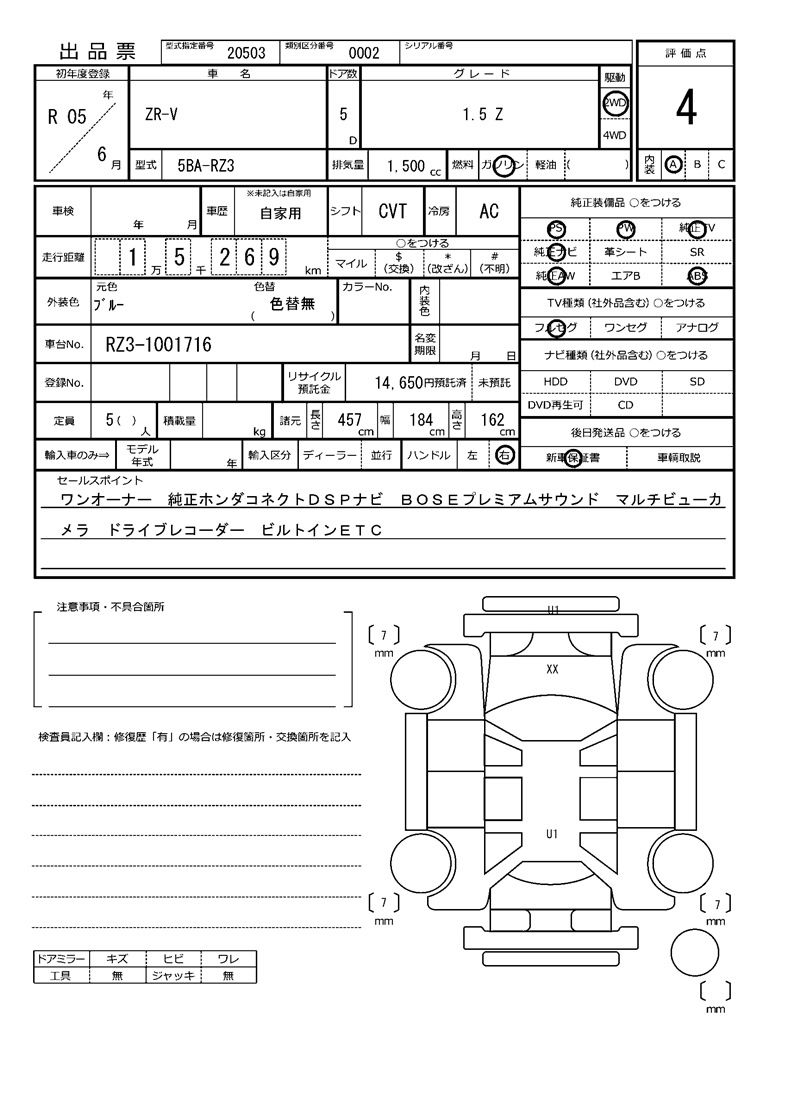 出品票 型式指定番号 20503 類別区分番号 0002 シリアル番号
評価点
初年度登録 車名 ドア数 グレード 駆動
R 05 年 6 月 ZR-V 5 D 1.5 Z 2WD 4WD
4
型式 5BA-RZ3 排気量 1,500 cc 燃料 ガソリン 軽油 ( )
内装 A B C
車検 年 月 車歴 ※未記入は自家用 自家用 シフト CVT 冷房 AC
純正装備品 ○をつける
PS PW 純正TV
走行距離 1 万 5 千 2 6 9 km
○をつける
マイル $ (交換) * (改ざん) # (不明)
純正ナビ 革シート SR
純正AW エアB ABS
外装色 元色 ブルー 色替 色替無 ( ) カラーNo. 内装色
TV種類(社外品含む)○をつける
フルセグ ワンセグ アナログ
車台No. RZ3-1001716 名変期限 月 日
ナビ種類(社外品含む)○をつける
登録No. リサイクル預託金 14,650円預託済 未預託
HDD DVD SD
DVD再生可 CD
定員 5( ) 人 積載量 kg 諸元 長さ 457 cm 幅 184 cm 高さ 162 cm
後日発送品 ○をつける
輸入車のみ⇒ モデル年式 年 輸入区分 ディーラー 並行 ハンドル 左 右
新車保証書 車輌取説
セールスポイント
ワンオーナー 純正ホンダコネクトDSPナビ BOSEプレミアムサウンド マルチビューカ
メラ ドライブレコーダー ビルトインETC
注意事項・不具合箇所
U1
[ 7 ] mm
[ 7 ] mm
XX
検査員記入欄：修復歴「有」の場合は修復箇所・交換箇所を記入
U1
[ 7 ] mm
[ 7 ] mm
ドアミラー キズ ヒビ ワレ
工具 無 ジャッキ 無
[ ] mm